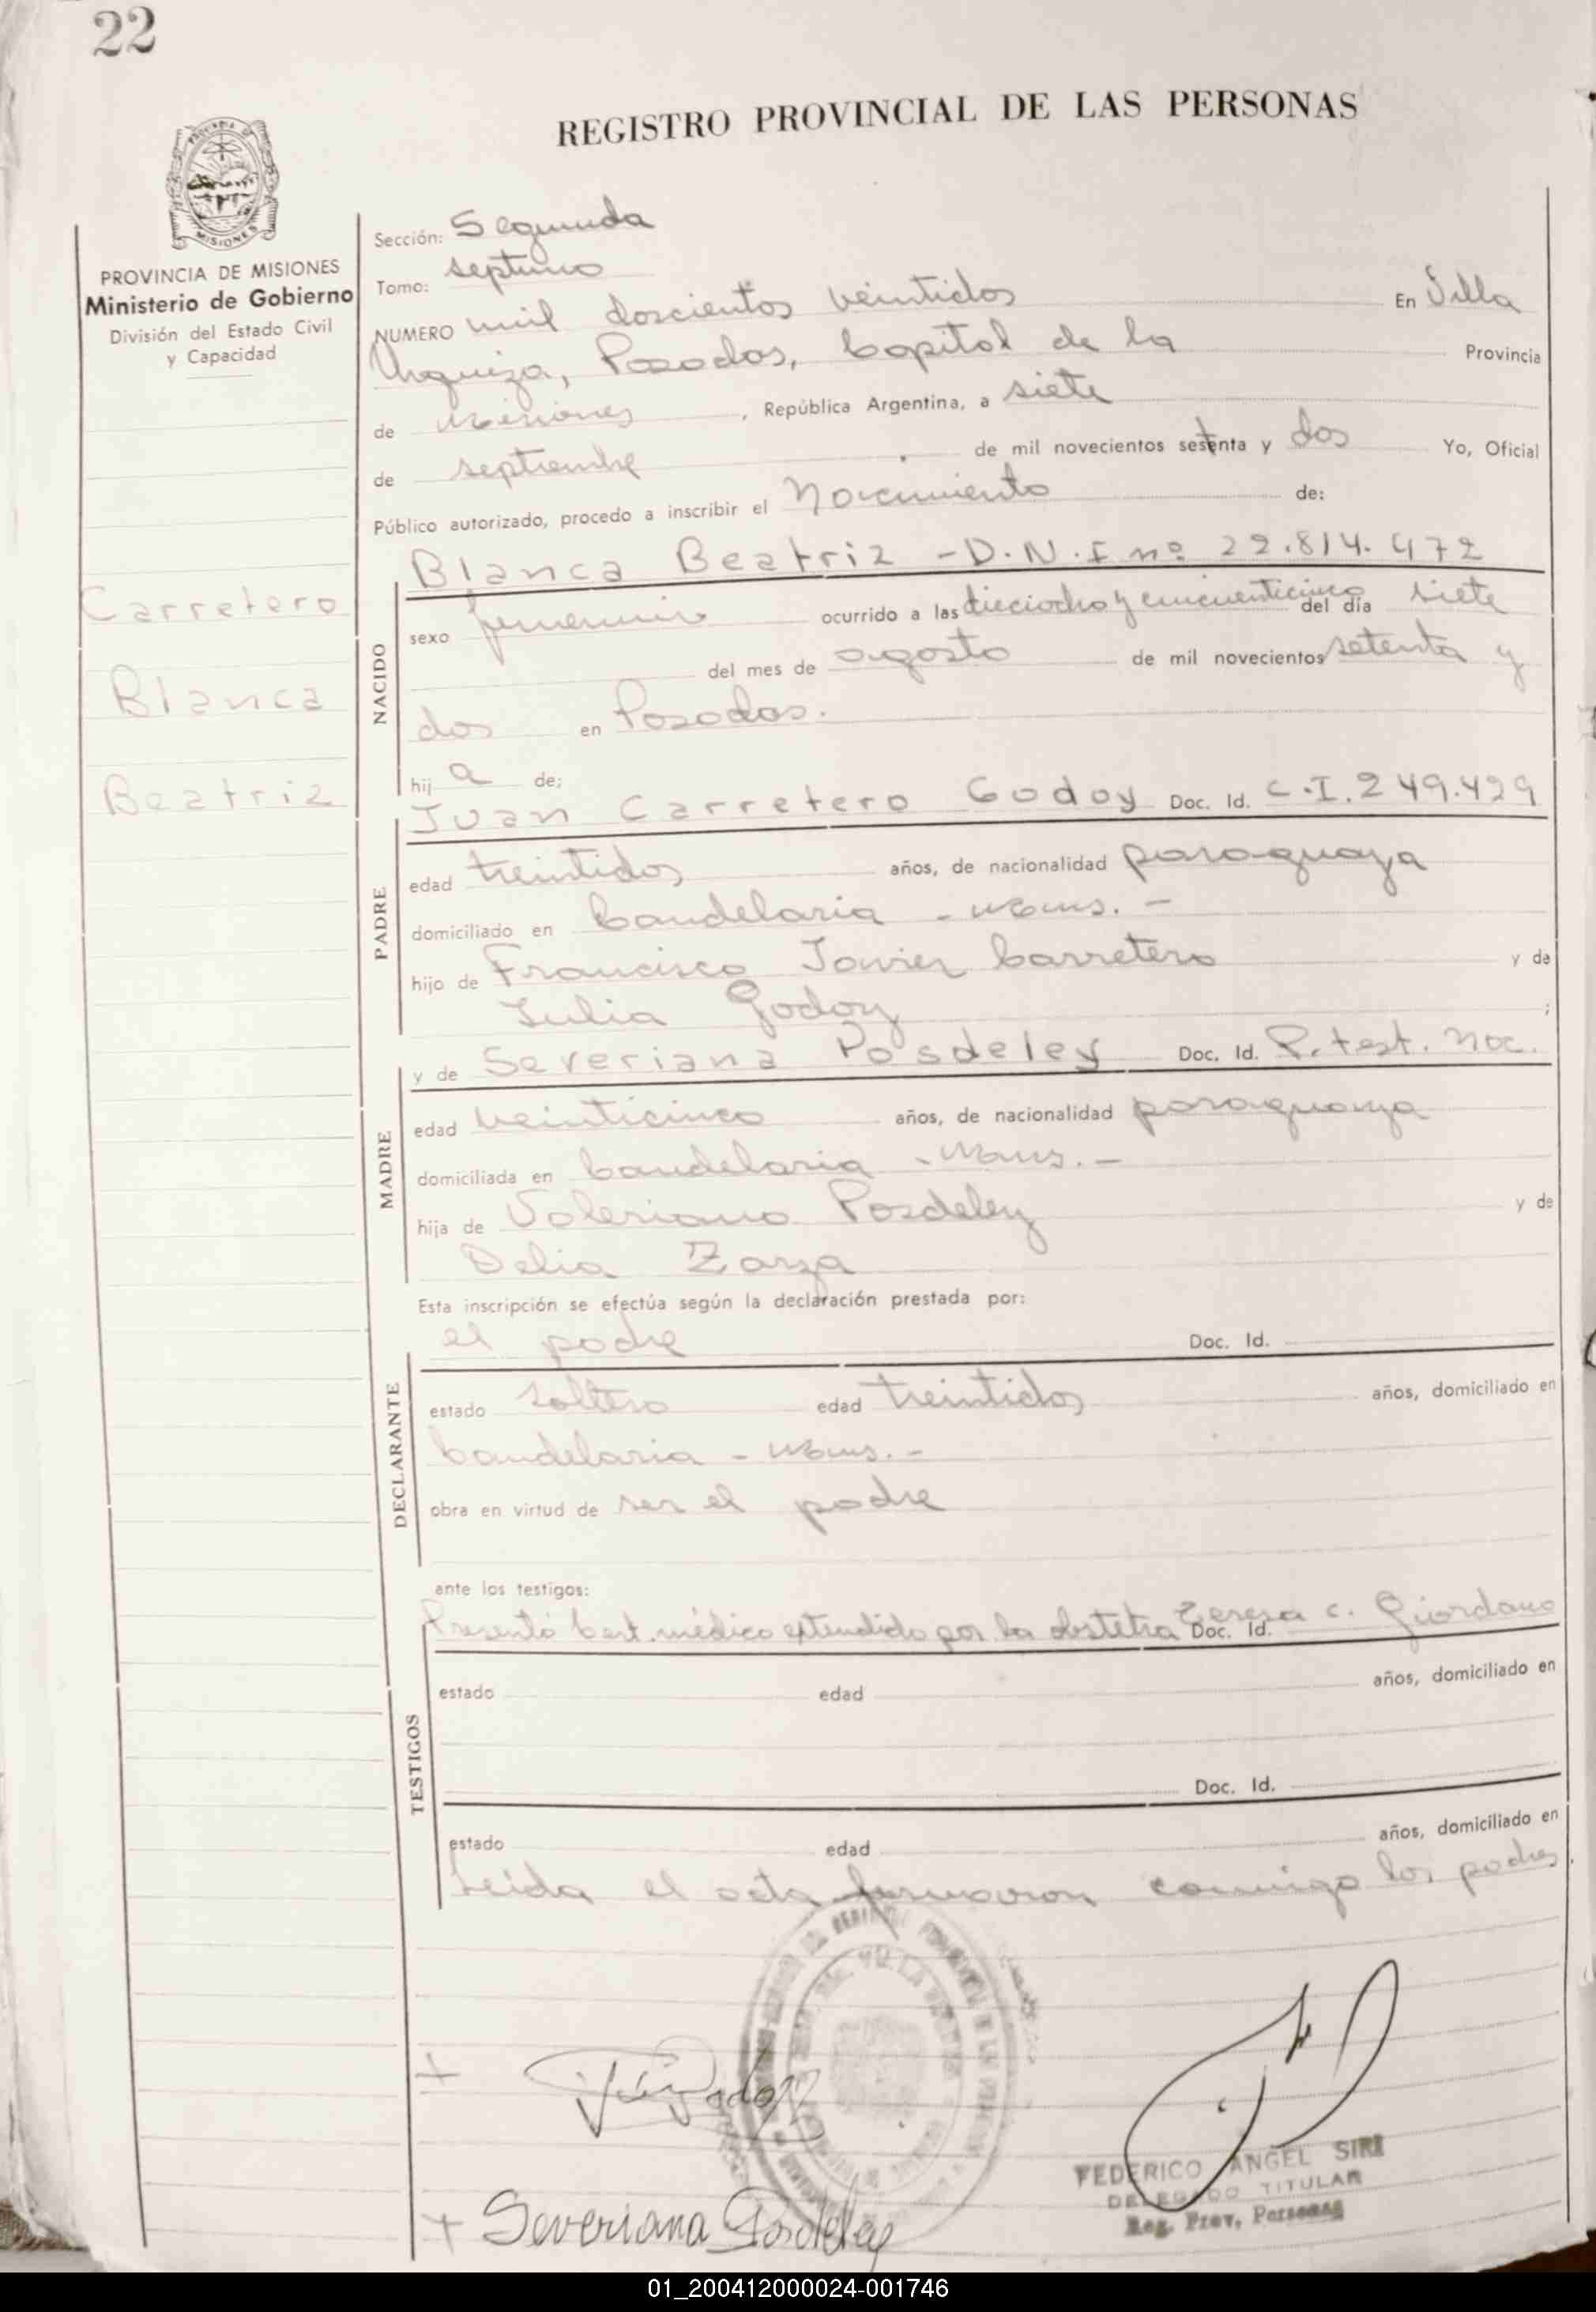 22
REGISTRO PROVINCIAL DE LAS PERSONAS
PROVINCIA DE MISIONES
Ministerio de Gobierno
División del Estado Civil
y Capacidad
Carretero
Blanca
Beatriz
Sección: Segunda
Tomo: septimo
NUMERO mil doscientos veintidos En Villa
Urquiza, Posadas, Capital de la Provincia
de Misiones, República Argentina, a siete
de septiembre de mil novecientos setenta y dos Yo, Oficial
Público autorizado, procedo a inscribir el Nacimiento de:
NACIDO
Blanca Beatriz - D.N.I nº 22.814.472
sexo femenino ocurrido a las dieciocho y cincuenticinco del día siete
del mes de agosto de mil novecientos setenta y
dos en Posadas.
hija de;
PADRE
Juan Carretero Godoy Doc. Id. C.I. 249.429
edad treintidos años, de nacionalidad paraguaya
domiciliado en Candelaria - Mnes. -
hijo de Francisco Javier Carretero y de
Julia Godoy ;
MADRE
y de Severiana Posdeley Doc. Id. P. test. Nac.
edad veinticinco años, de nacionalidad paraguaya
domiciliada en Candelaria - Mnes. -
hija de Valeriano Posdeley y de
Delia Zarza
Esta inscripción se efectúa según la declaración prestada por:
DECLARANTE
el padre Doc. Id.
estado soltero edad treintidos años, domiciliado en
Candelaria - Mnes. -
obra en virtud de ser el padre
ante los testigos:
TESTIGOS
Presentó Cert. médico extendido por la obstetra Teresa C. Giordano Doc. Id.
estado edad años, domiciliado en
Doc. Id.
estado edad años, domiciliado en
Leida el acta firmaron conmigo los padres
Severiana Posdeley
FEDERICO ANGEL SIRI
DELEGADO TITULAR
Reg. Prov. Personas
01_200412000024-001746